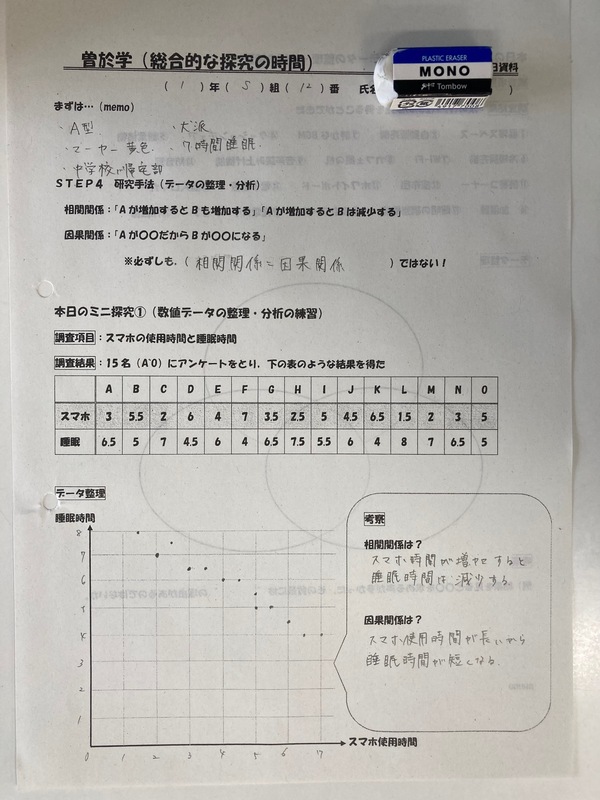 曽於学（総合的な探究の時間）
資料
PLASTIC ERASER
MONO
Tombow
（ 1 ）年（ 5 ）組（ 12 ）番 氏名 ）
まずは…（memo）
・A型 ・犬派
・マーヤー黄色 ・7時間睡眠
・中学校は帰宅部
STEP４ 研究手法（データの整理・分析）
相関関係：「Aが増加するとBも増加する」「Aが増加するとBは減少する」
因果関係：「Aが〇〇だからBが〇〇になる」
※必ずしも，（ 相関関係＝因果関係 ）ではない！
本日のミニ探究①（数値データの整理・分析の練習）
調査項目：スマホの使用時間と睡眠時間
調査結果：15名（A~O）にアンケートをとり，下の表のような結果を得た
A B C D E F G H I J K L M N O
スマホ 3 5.5 2 6 4 7 3.5 2.5 5 4.5 6.5 1.5 2 3 5
睡眠 6.5 5 7 4.5 6 4 6.5 7.5 5.5 6 4 8 7 6.5 5
データ整理
睡眠時間
8
7
6
5
4
3
2
1
0 1 2 3 4 5 6 7
スマホ使用時間
考察
相関関係は？
スマホ時間が増加すると
睡眠時間は減少する
因果関係は？
スマホ使用時間が長いから
睡眠時間が短くなる。